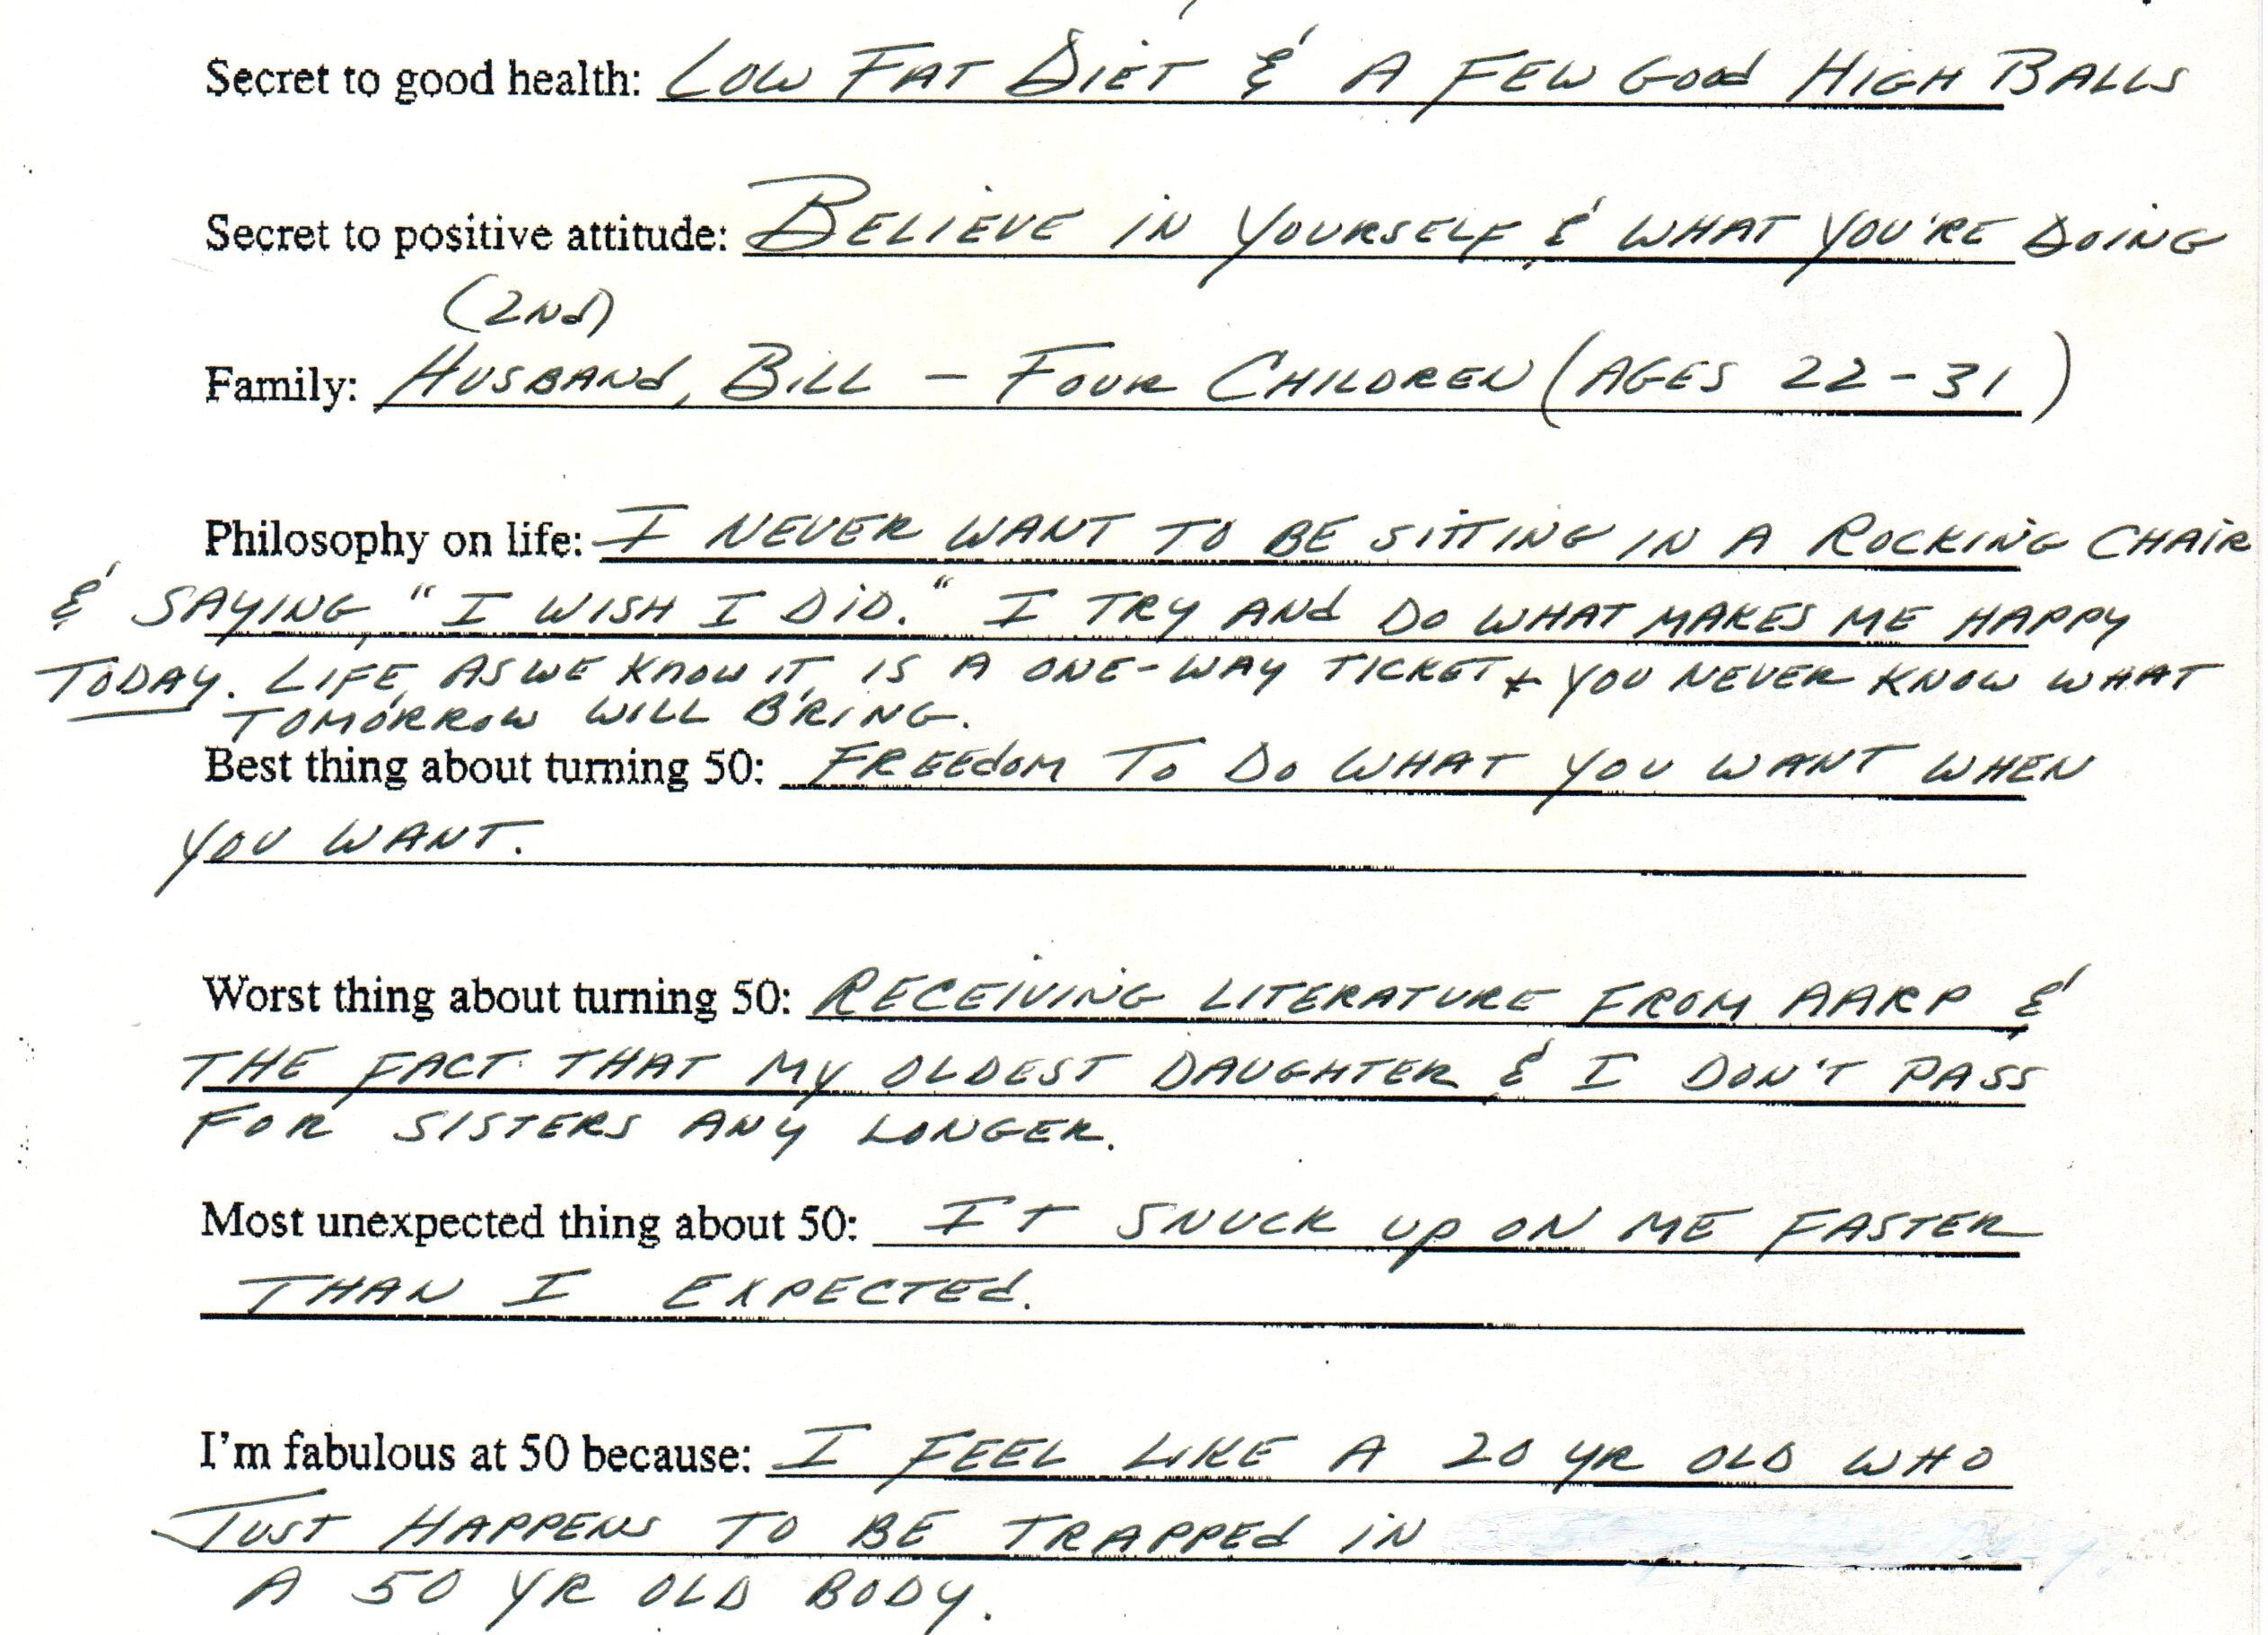 Secret to good health: LOW FAT DIET & A FEW GOOD HIGH BALLS
Secret to positive attitude: BELIEVE IN YOURSELF & WHAT YOU'RE DOING
(2ND)
Family: HUSBAND, BILL - FOUR CHILDREN (AGES 22-31)
Philosophy on life: I NEVER WANT TO BE SITTING IN A ROCKING CHAIR
& SAYING, "I WISH I DID." I TRY AND DO WHAT MAKES ME HAPPY
TODAY. LIFE, AS WE KNOW IT, IS A ONE-WAY TICKET + YOU NEVER KNOW WHAT
TOMORROW WILL BRING.
Best thing about turning 50: FREEDOM TO DO WHAT YOU WANT WHEN
YOU WANT.
Worst thing about turning 50: RECEIVING LITERATURE FROM AARP &
THE FACT THAT MY OLDEST DAUGHTER & I DON'T PASS
FOR SISTERS ANY LONGER.
Most unexpected thing about 50: IT SNUCK UP ON ME FASTER
THAN I EXPECTED.
I'm fabulous at 50 because: I FEEL LIKE A 20 YR OLD WHO
JUST HAPPENS TO BE TRAPPED IN
A 50 YR OLD BODY.